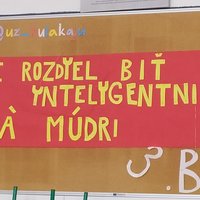 E ROZDYEL BIŤ
YNTELYGENTNI
À MÚDRI
3.B